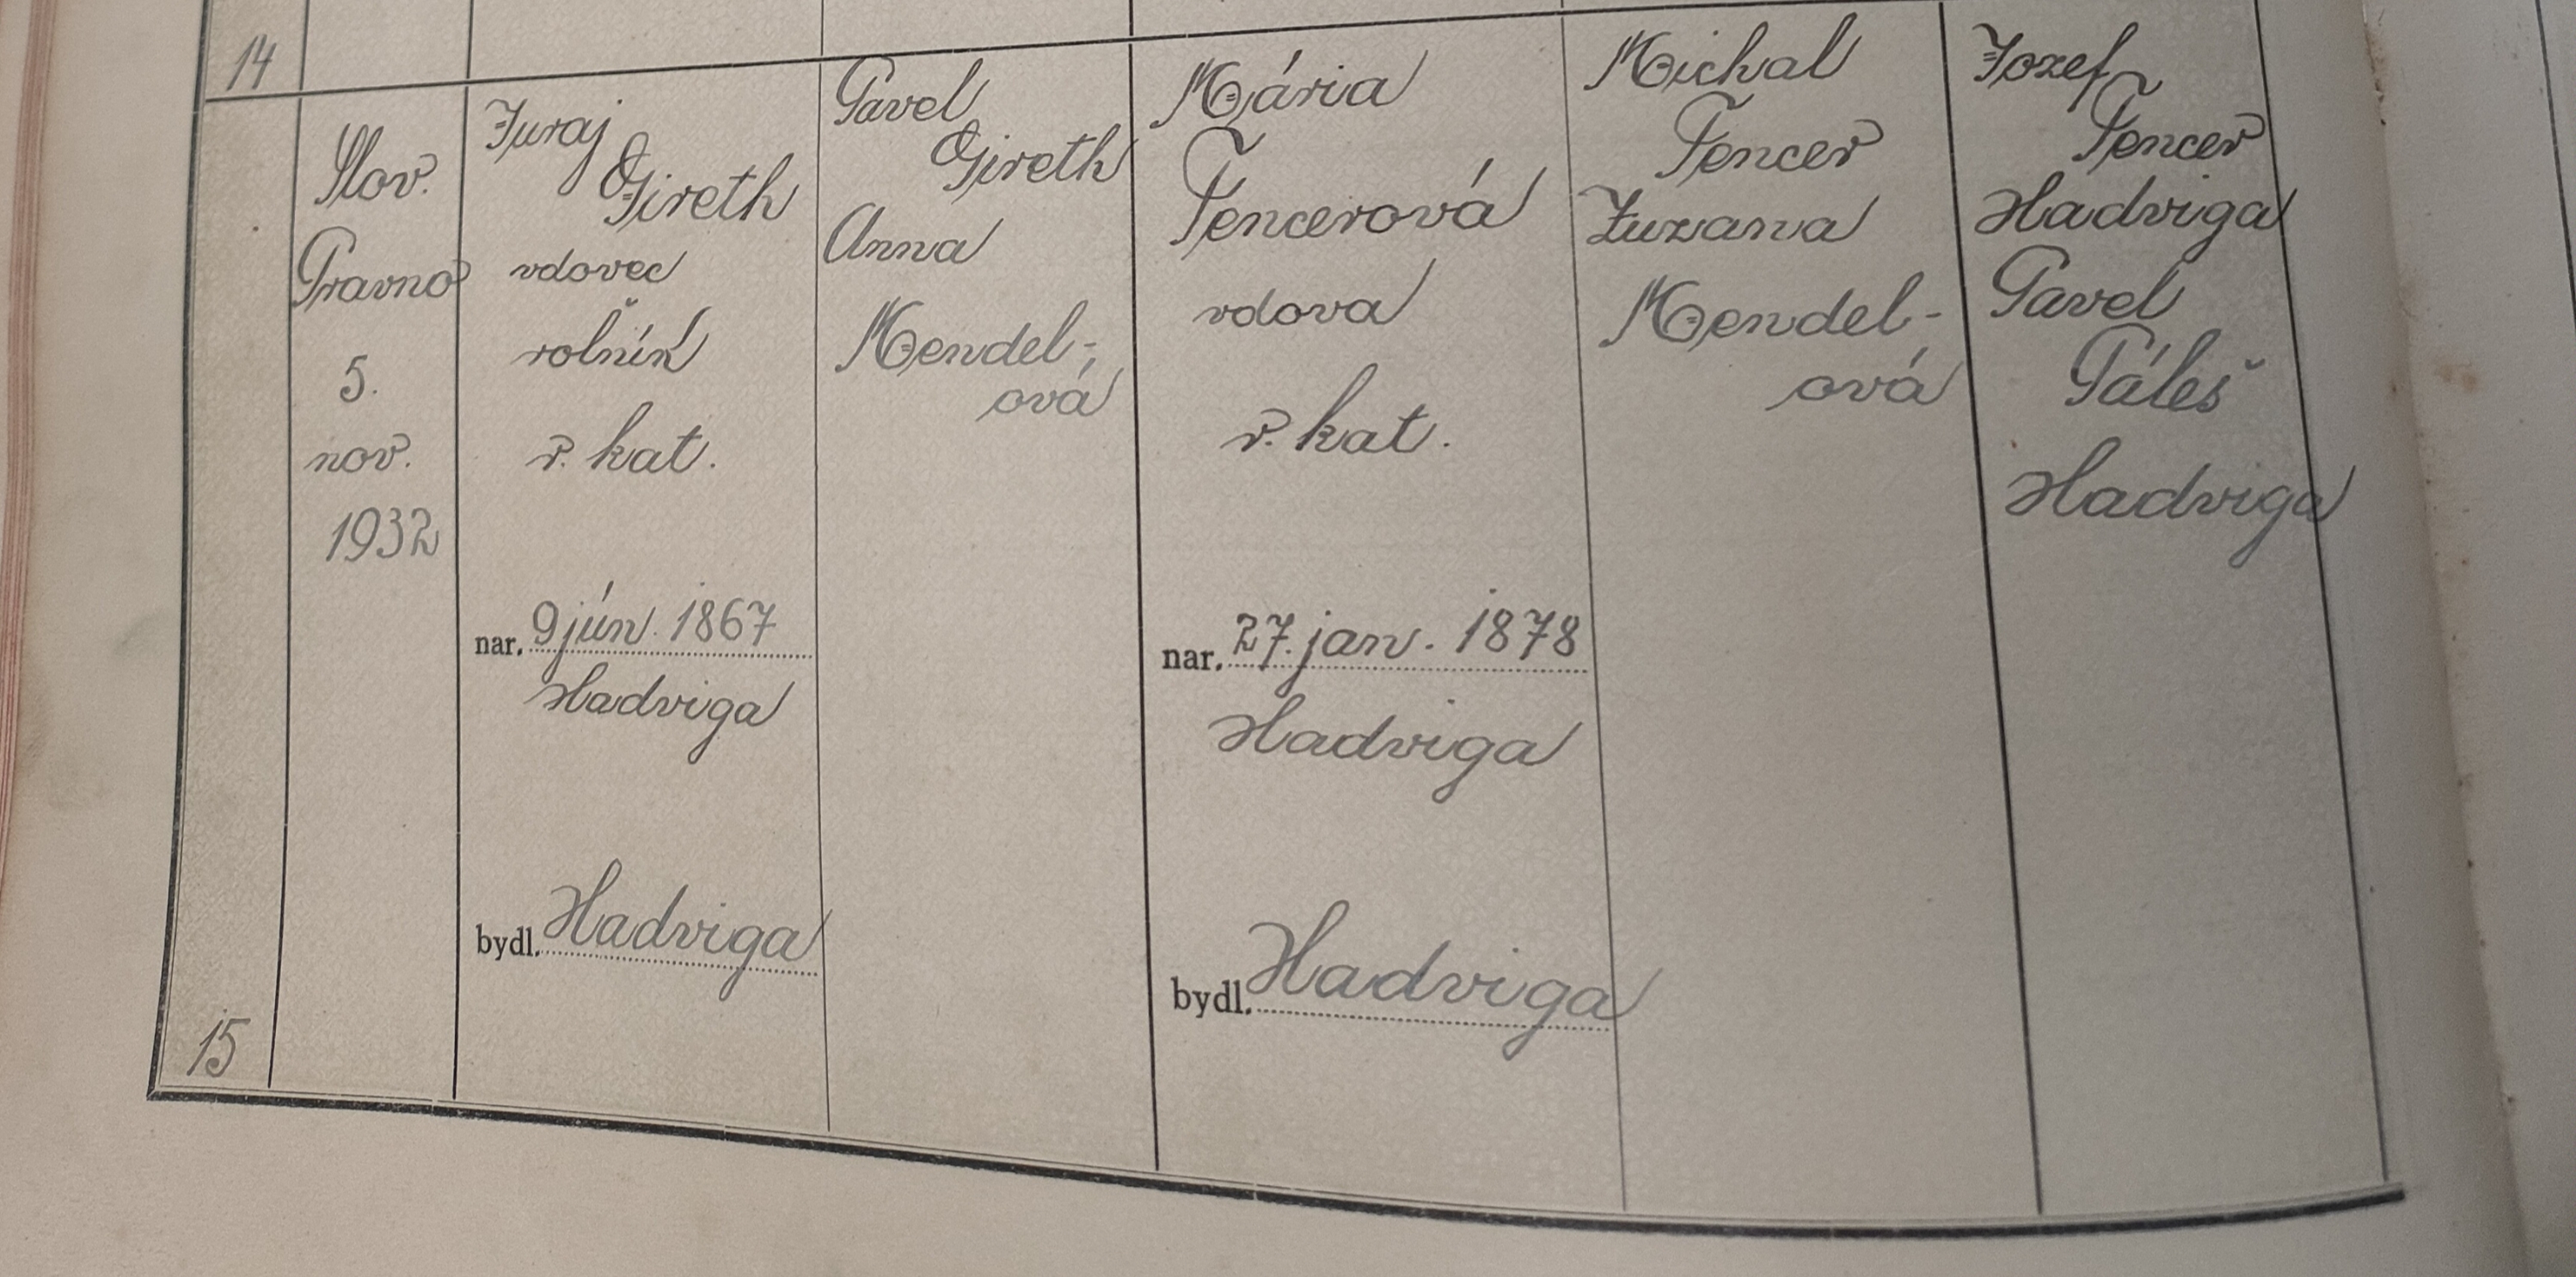 14
Slov.
Pravno
5.
nov.
1932
15
Juraj
Gireth
vdovec
rolník
r. kat.
nar. 9 jún. 1867
Hadviga
bydl. Hadviga
Pavel
Gireth
Anna
Mendel-
ová
Mária
Fencerová
vdova
r. kat.
nar. 27. jan. 1878
Hadviga
bydl. Hadviga
Michal
Fencer
Zuzana
Mendel-
ová
Jozef
Fencer
Hadviga
Pavel
Páleš
Hadviga